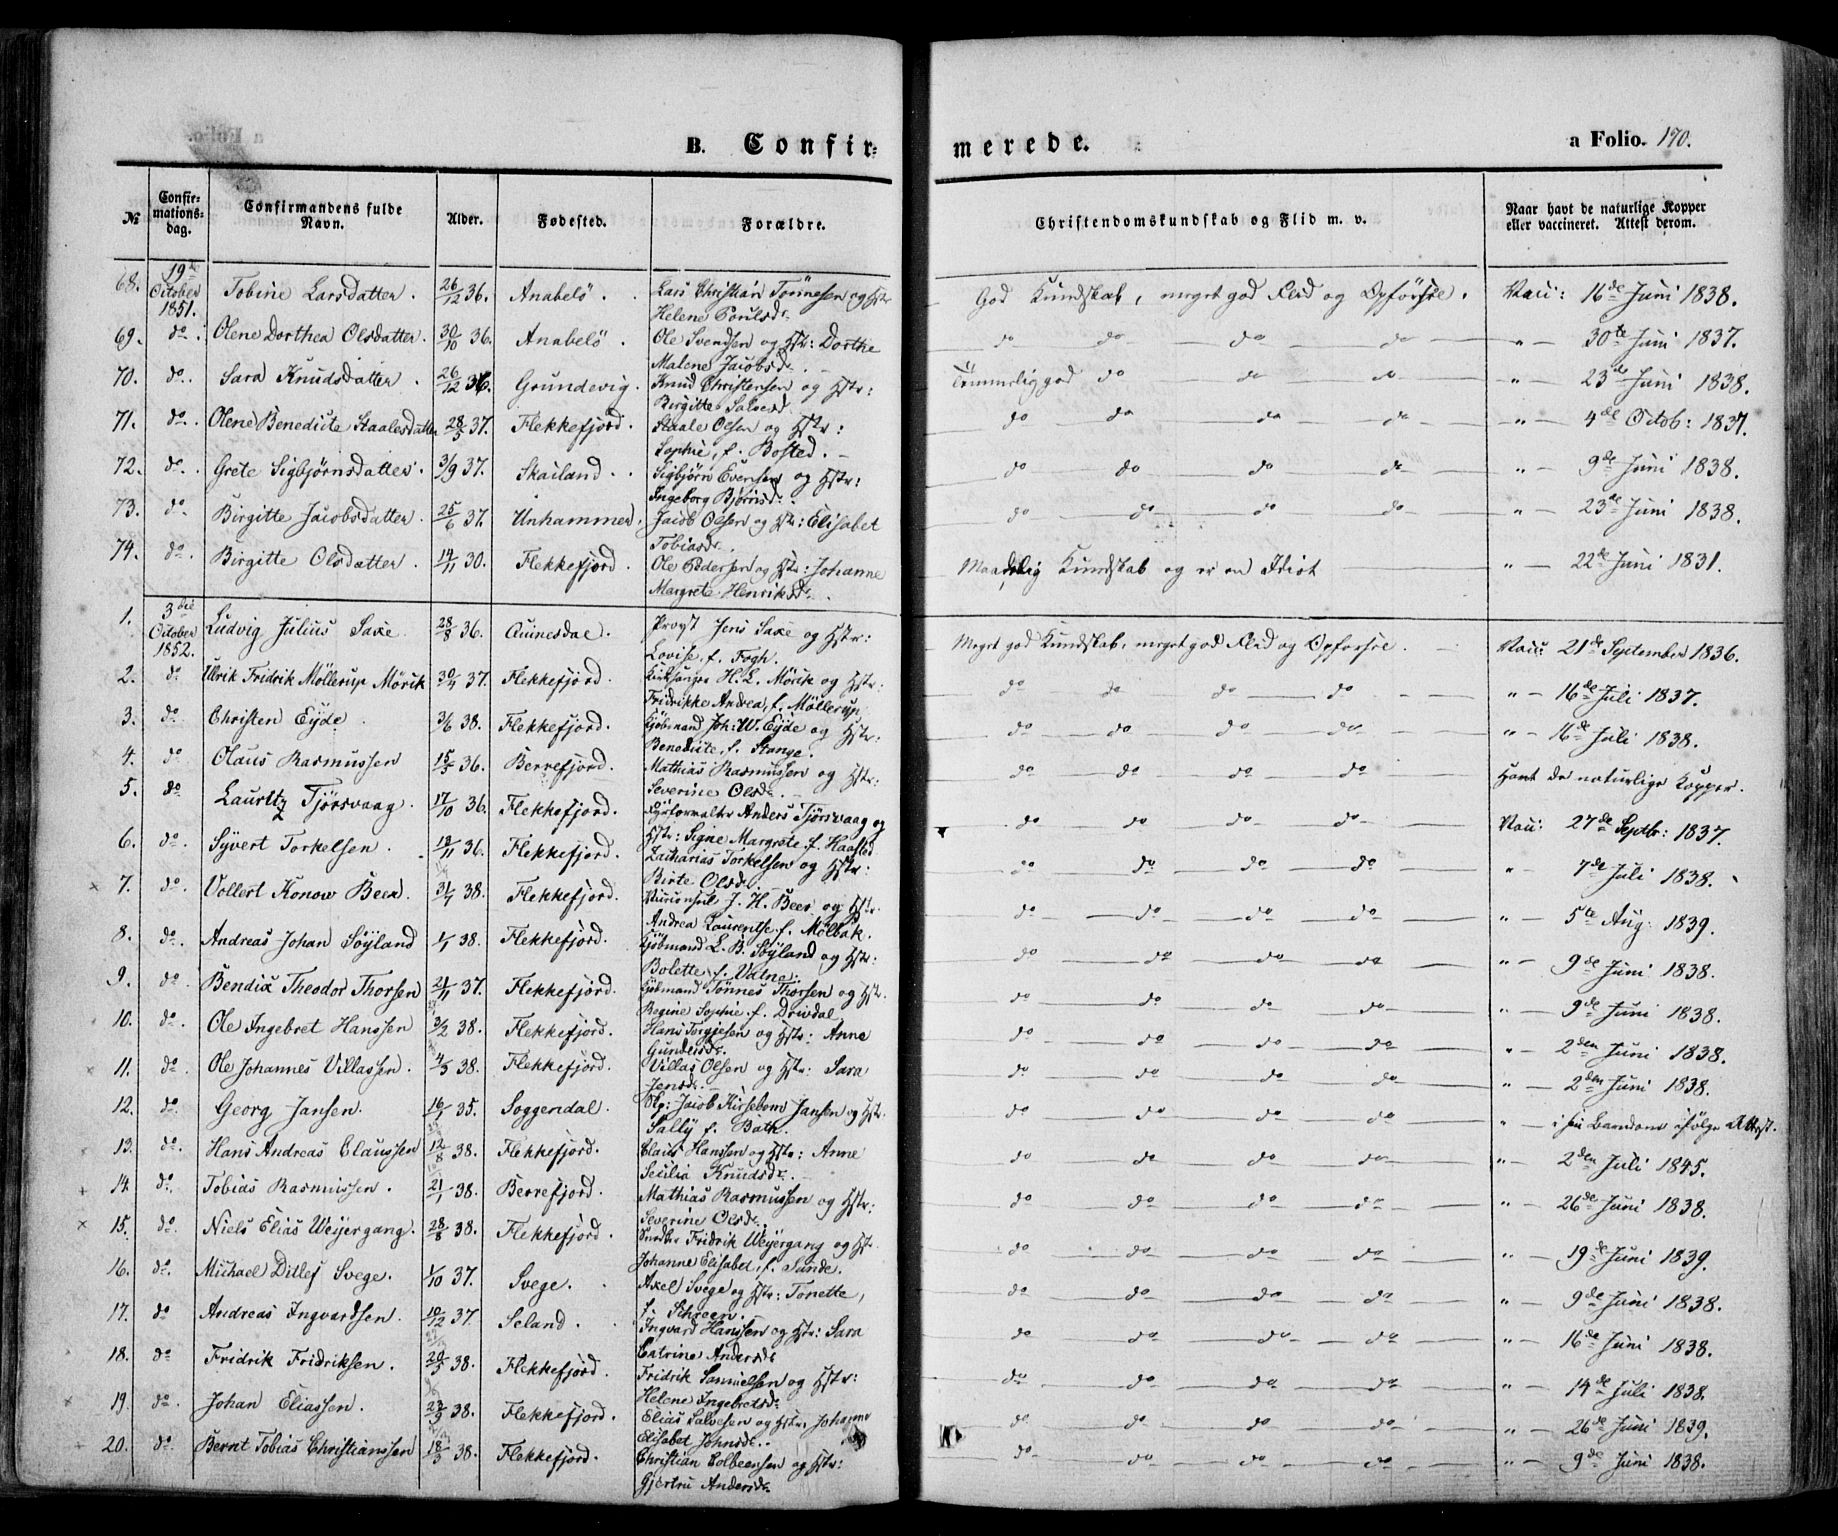 B. Confir-
merede.
a Folio. 190.
№ Confirmationsdag. Confirmandens fulde Navn. Alder. Fødested. Forældre. Christendomskundskab og Flid m. v. Naar havt de naturlige Kopper eller vaccineret. Attest derom.
68. 19de October 1851. Tobine Larsdatter. 26/12 36. Anabelö. Lars Christian Tönnesen og Hstr Helene Poulsdr. God Kundskab, meget god Flid og Opförsel. Vacc: 16de Juni 1838.
69. do. Olene Dorthea Olsdatter. 30/10 36. Anabelö. Ole Svendsen og Hstr: Dorthe Malene Jacobsdr. do do do do " — 30te Juni 1837.
70. do. Sara Knudsdatter. 26/12 36. Grundevig. Knud Christensen og Hstr: Birgitte Salvesd. Temmelig god do do do " — 23de Juni 1838.
71. do. Olene Benedicte Staalesdatter 28/5 37. Flekkefjord. Staale Olsen og Hstr: Sophie, f. Bosted. do do do do " — 4de Octob: 1837.
72. do. Grete Sigbjørnsdatter. 3/9 37. Skailand. Sigbjörn Evensen og Hstr: Ingeborg Bjørnsd. do do do do " — 9de Juni 1838.
73. do. Birgitte Jacobsdatter. 25/6 37. Unhammer. Jacob Olsen og Hstr: Elisabet Tobiasdr. do do do do " — 23de Juni 1838.
74. do. Birgitte Olsdatter. 14/11 30. Flekkefjord. Ole Pedersen og Hstr: Johanne Margrete Henriksdr. Maadelig Kundskab og er en Idiot " — 22de Juni 1831.
1. 3die October 1852. Ludvig Julius Saxe. 28/8 36. Quinesdal. Provst Jens Saxe og Hstr: Lovise, f. Fogh. Meget god Kundskab, meget god Flid og Opførsel. Vacc: 21de September 1836.
2. do Ulrik Fridrik Möllerup Mörik 30/4 37. Flekkefjord. Kirksanger H. L. Mörik og Hstr: Fridrikke Andrea, f. Möllerup. do do do do " — 16de Juli 1837.
3. do Christen Eyde. 3/6 38. Flekkefjord. Kjöbmand Joh: W. Eyde og Hstr: Benedicte, f. Stange. do do do do " — 16de Juli 1838.
4. do Olaus Rasmussen 15/3 36. Berrefjord. Mathias Rasmussen og Hstr: Severine Olsdr. do do do do Havt de naturlige Kopper.
5. do Lauritz Tjörsvaag. 17/10 36. Flekkefjord. Fyrforvalter Anders Tjörsvaag og Hstr: Signe Margrete, f. Haasted do do do do Vacc: 27de Septbr: 1837.
6. do. Syvert Torkelsen. 18/11 36. Flekkefjord. Zacharias Torkelsen og Hstr: Birte Olsdr. do do do do " — 7de Juli 1838.
7. do. Vollert Konow Beer. 31/7 38. Flekkefjord. Viceconsul J. H. Beer og Hstr. Andrea Laurentse f. Mölbak. do do do do " — 5te Aug: 1839.
8. do. Andreas Johan Söyland 1/1 38. Flekkefjord. Kjöbmand L. B. Söyland og Hstr: Bolette, f. Valne. do do do do " — 9de Juni 1838.
9. do. Bendix Theodor Thorsen 21/11 37. Flekkefjord. Kjöbmand Tönnes Thorsen og Hstr. Regine Sophie f. Drivdal do do do do " — 9de Juni 1838.
10. do. Ole Ingebret Hanssen 3/2 38. Flekkefjord. Hans Torgjesen og Hstr: Anne Gundersdr. do do do do " — 2den Juni 1838.
11. do. Ole Johannes Villassen. 4/3 38. Flekkefjord. Villas Olsen og Hstr: Sara Jensdr. do do do do " — 2den Juni 1838.
12. do. Georg Jansen. 16/1 35. Soggendal. Skp: Jacob Kirsebom Jansen og Hstr. Sally f. Bøth. do do do do " — i sin Barndom ifölge Attest.
13. do. Hans Andreas Claussen 12/8 38. Flekkefjord. Claus Hanssen og Hstr: Anne Secilia Knudsdr. do do do do " — 2den Juli 1845.
14. do. Tobias Rasmussen. 21/1 38. Berrefjord. Mathias Rasmussen og Hstr: Severine Olsdr. do do do do " — 26de Juni 1838.
15. do. Niels Elias Weyergang. 28/8 38. Flekkefjord. Fridrik Weyergang og Hstr. Johanne Elisabet, f. Sunde. do do do do " — 19de Juni 1839.
16. do. Michael Ditlef Svege. 1/10 37. Svege. Axel Svege og Hstr: Tonette, f. Schreen. do do do do " — 9de Juni 1838.
17. do Andreas Ingvardsen. 10/12 37. Seland. Ingvard Hanssen og Hstr: Sara Catrine Andersdr do do do do " — 16de Juni 1838.
18. do Fridrik Fridriksen. 20/3 38. Flekkefjord. Fridrik Samuelsen og Hstr: Helene Ingebretsdr. do do do do " — 14de Juli 1838.
19. do. Johan Eliassen. 23/9 38. Flekkefjord. Elias Salvesen og Hstr. Johanne Elisabet Johnsdr. do do do do " — 26de Juni 1839.
20. do. Bernt Tobias Christianssen 18/3 38. Flekkefjord. Christian Colbeensen og Hstr: Gjertru Andersdr do do do do " — 9de Juni 1838.